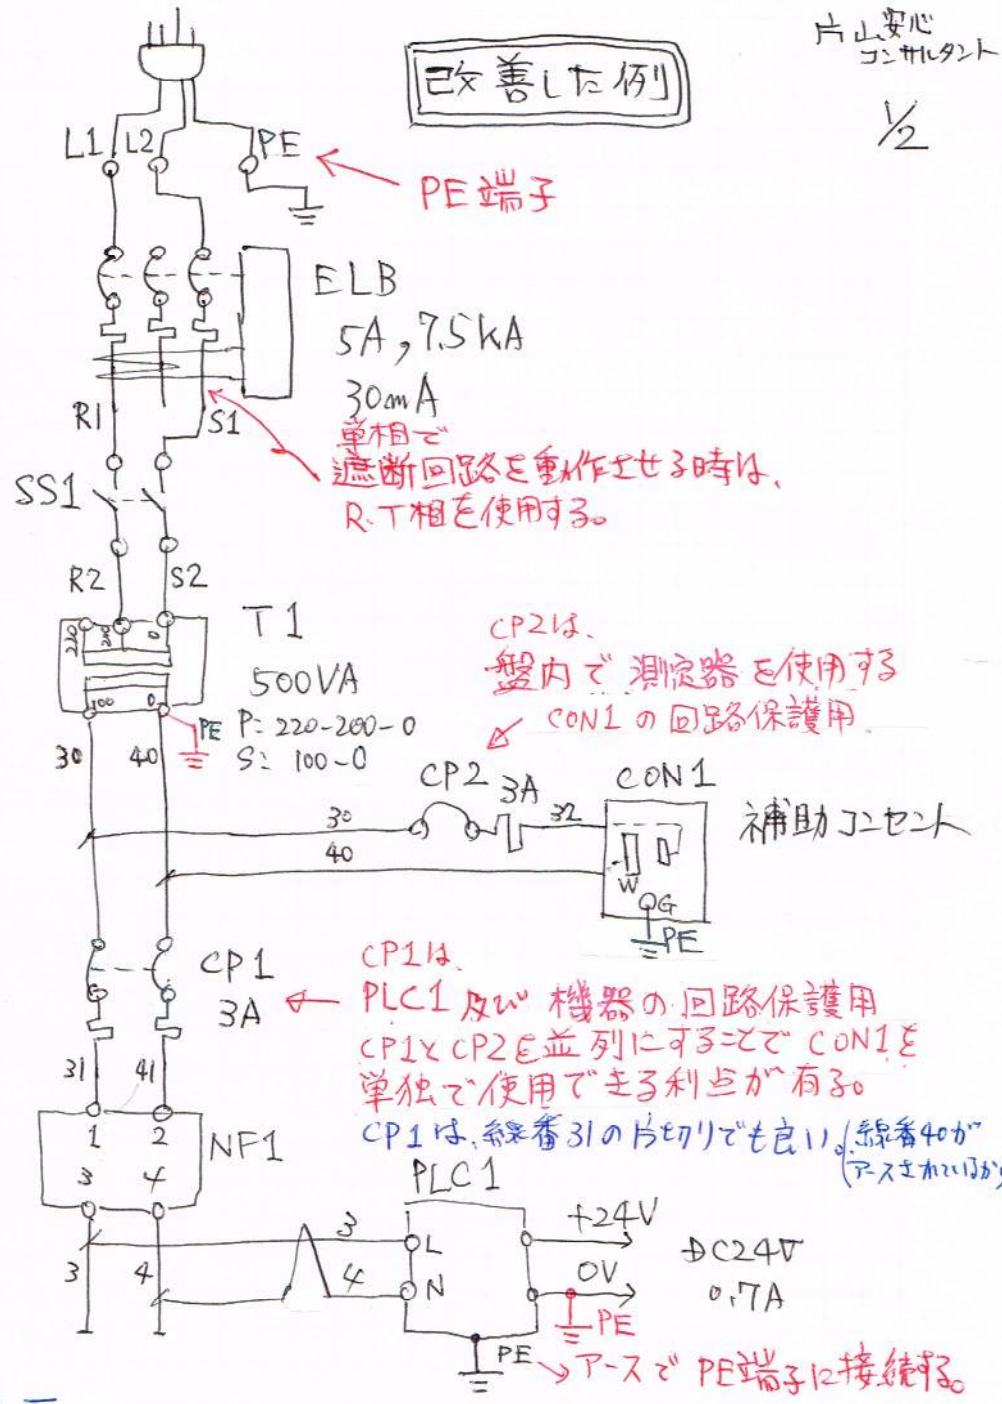 片山安心
コンサルタント
改善した例
1/2
L1 L2 PE
PE端子
ELB
5A, 7.5kA
30mA
R1 S1
単相で
遮断回路を動作させる時は、
R.T相を使用する。
SS1
R2 S2
T1
500VA
P: 220-200-0
S: 100-0
220 200 0
100 0
PE
CP2は、
盤内で測定器を使用する
CON1の回路保護用
30 40
CP2 3A CON1
30 32
40
W
G
PE
補助コンセント
CP1
3A
CP1は、
PLC1及び機器の回路保護用
CP1とCP2を並列にすることでCON1を
単独で使用できる利点が有る。
CP1は、線番31の片切りでも良い。(線番40が
アースされているから
31 41
1 2
NF1
3 4
PLC1
+24V
3 L
DC24V
3 4
4 N
0V
0.7A
PE
PE
アースでPE端子に接続する。